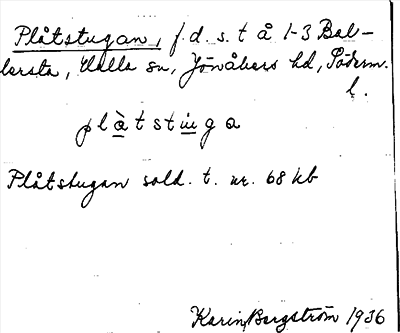 Plåtstugan, f.d. s. t å 1-3 Bal-
lersta, Lilla sn, Jönåkers hd, Söderm.
l.
plåtstuga
Plåtstugan sold. t. nr. 68 kb
Karin Bergström 1936